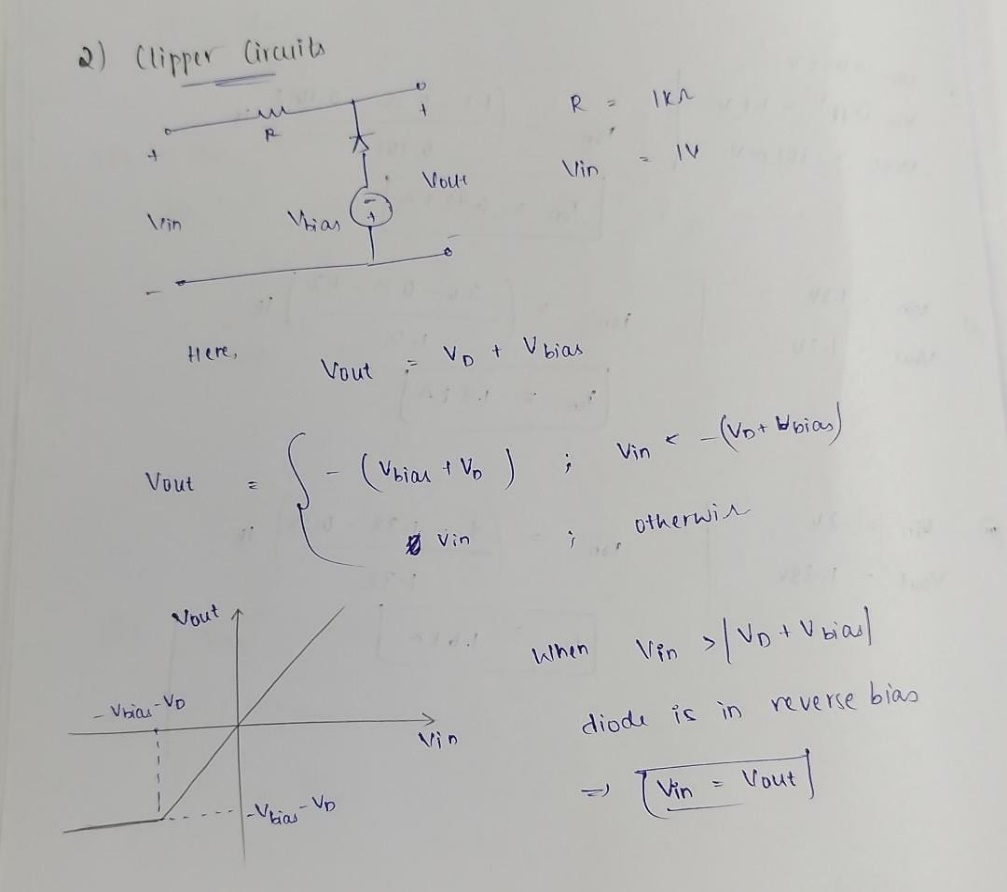 2) Clipper Circuits
R
+
+
-
+
Vin
Vbias
Vout
-
-
R = 1KΩ
Vin = 1V
Here,
Vout = VD + Vbias
Vout = { - (Vbias + VD) ; Vin < -(VD + Vbias)
Vin ; otherwis
Vout
- Vbias - VD
Vin
-Vbias - VD
When Vin > |VD + Vbias|
diode is in reverse bias
=> Vin = Vout